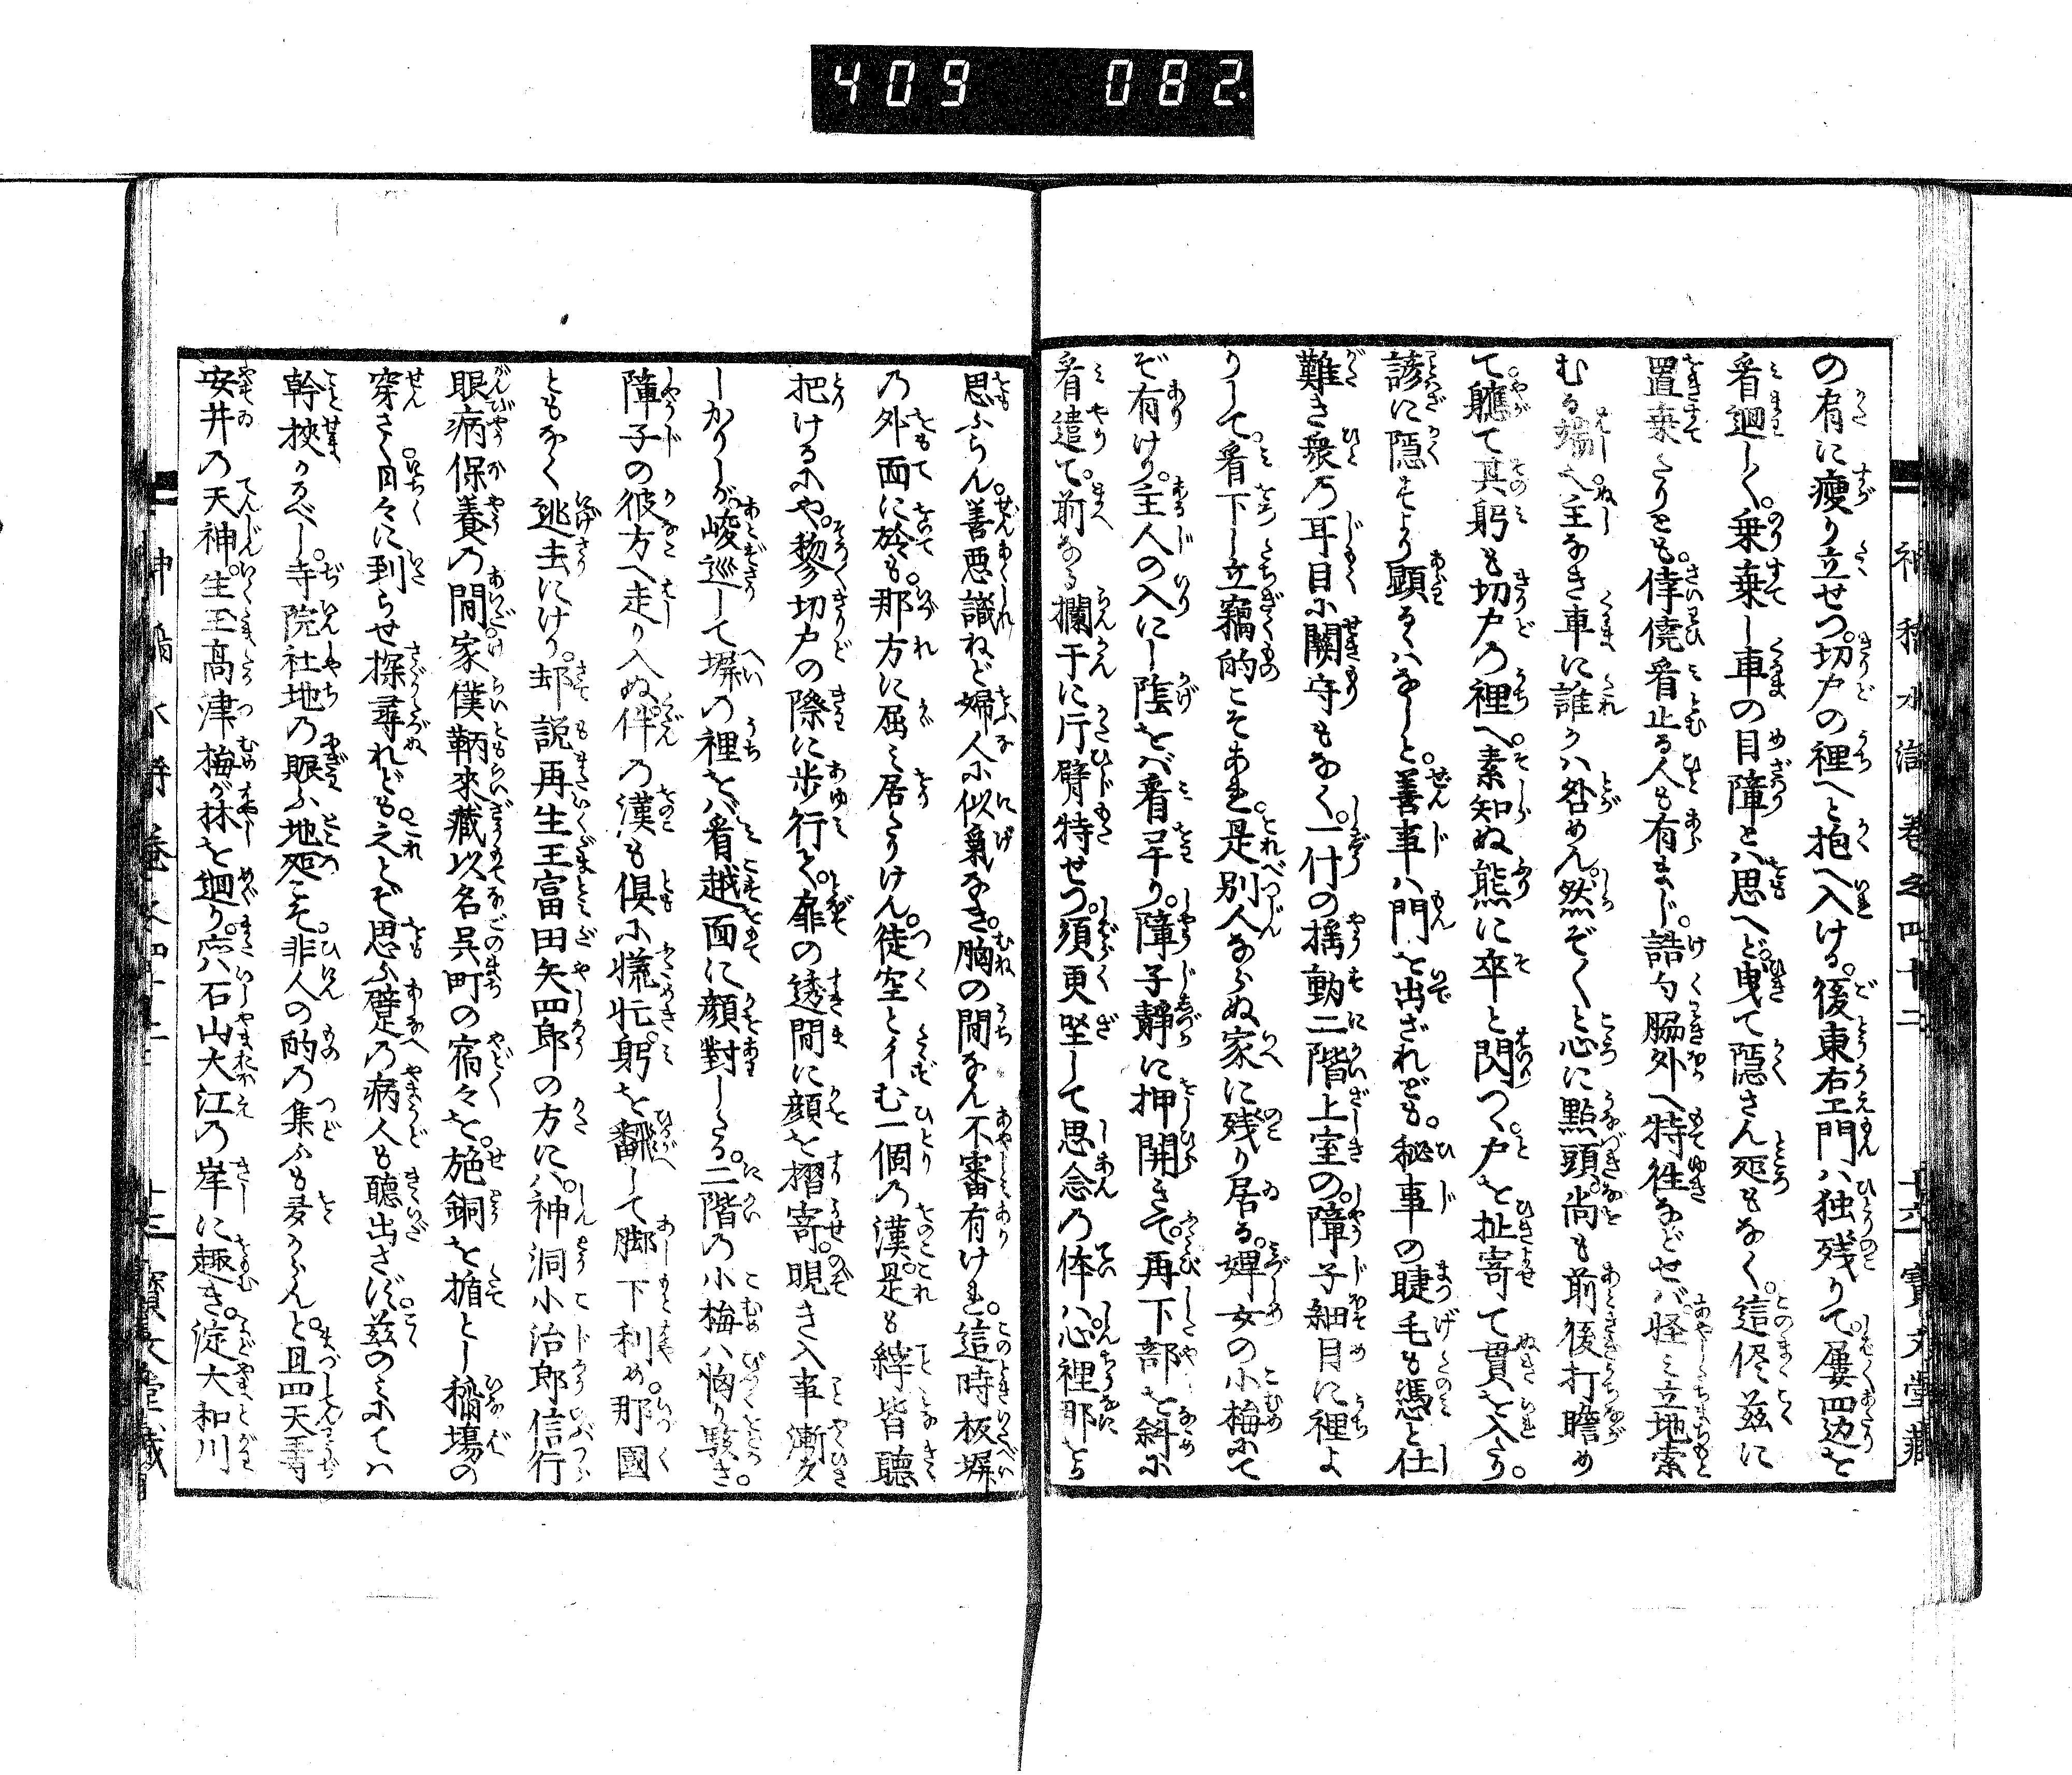 409 082
の肩に痩り立せつ。切戸の裡へと抱へ入ける。後東右エ門ハ独残りて。屢四辺を
看廻しく。乗棄し車の目障とハ思へど。曳て隠さん処もなく。這侭茲に
置棄たりとも。倖僥看止る人も有まじ。詰句脇外へ特往などせバ。怪ミ立地索
むる端也。主なき車に誰かハ咎めん。然ぞくと心に點頭。尚も前後打瞻め
て。軈て其躬も切戸の裡へ。素知ぬ熊に卒と閃つく。戸を扯寄て貫を入たり。
諺に隠すより顕るハなしと。善事ハ門を出ざれども。秘事の睫毛も憑と仕
難き衆乃耳目に關守もなく。一什の揺動二階上室の。障子細目に裡よ
りして。看下し立竊的こそあれ。是別人ならぬ家に残り居る。婢女の小梅にて
ぞ有けり。主人の入にし蔭をバ看早り。障子靜に押開きて。再下部を斜に
看遣て。前なる欄干に片臂特せつ。須更坐して思念乃体ハ。心裡那とら
思ふらん。善悪識ねど婦人に似氣なき。胸の間なん不審有けれ。這時板塀
乃外面に於も。那方に屈ミ居たりけん。徒空と彳む一個乃漢。是も縡皆聴
把けるにや。黎切戸の際に歩行て。扉の透間に顔を摺寄。睨き入事漸久
しかりしが。峻巡して塀の裡をバ看越面に顔對したる。二階乃小梅ハ恟り駭き。
障子の彼方へ走り入ぬ。伴乃漢も倶に慌忙。躬を翻して脚下利め。那國
ともなく逃去にけり。却説再生王富田矢四郎の方にハ。神洞小治郎信行
眼病保養乃間。家僕鞆來藏以名呉町の宿々を。施銅を楯とし稲場の
穿さく日々に到らせ探尋れども。之とぞ思ふ躄乃病人も聽出さず。茲のミにてハ
幹挾かるべし。寺院社地乃賑ふ地処こそ。非人の的乃集ふも多からんと。且四天寺
安井乃天神。生玉高津梅が林を廻り。亦ハ石山大江乃岸に趣き。淀大和川